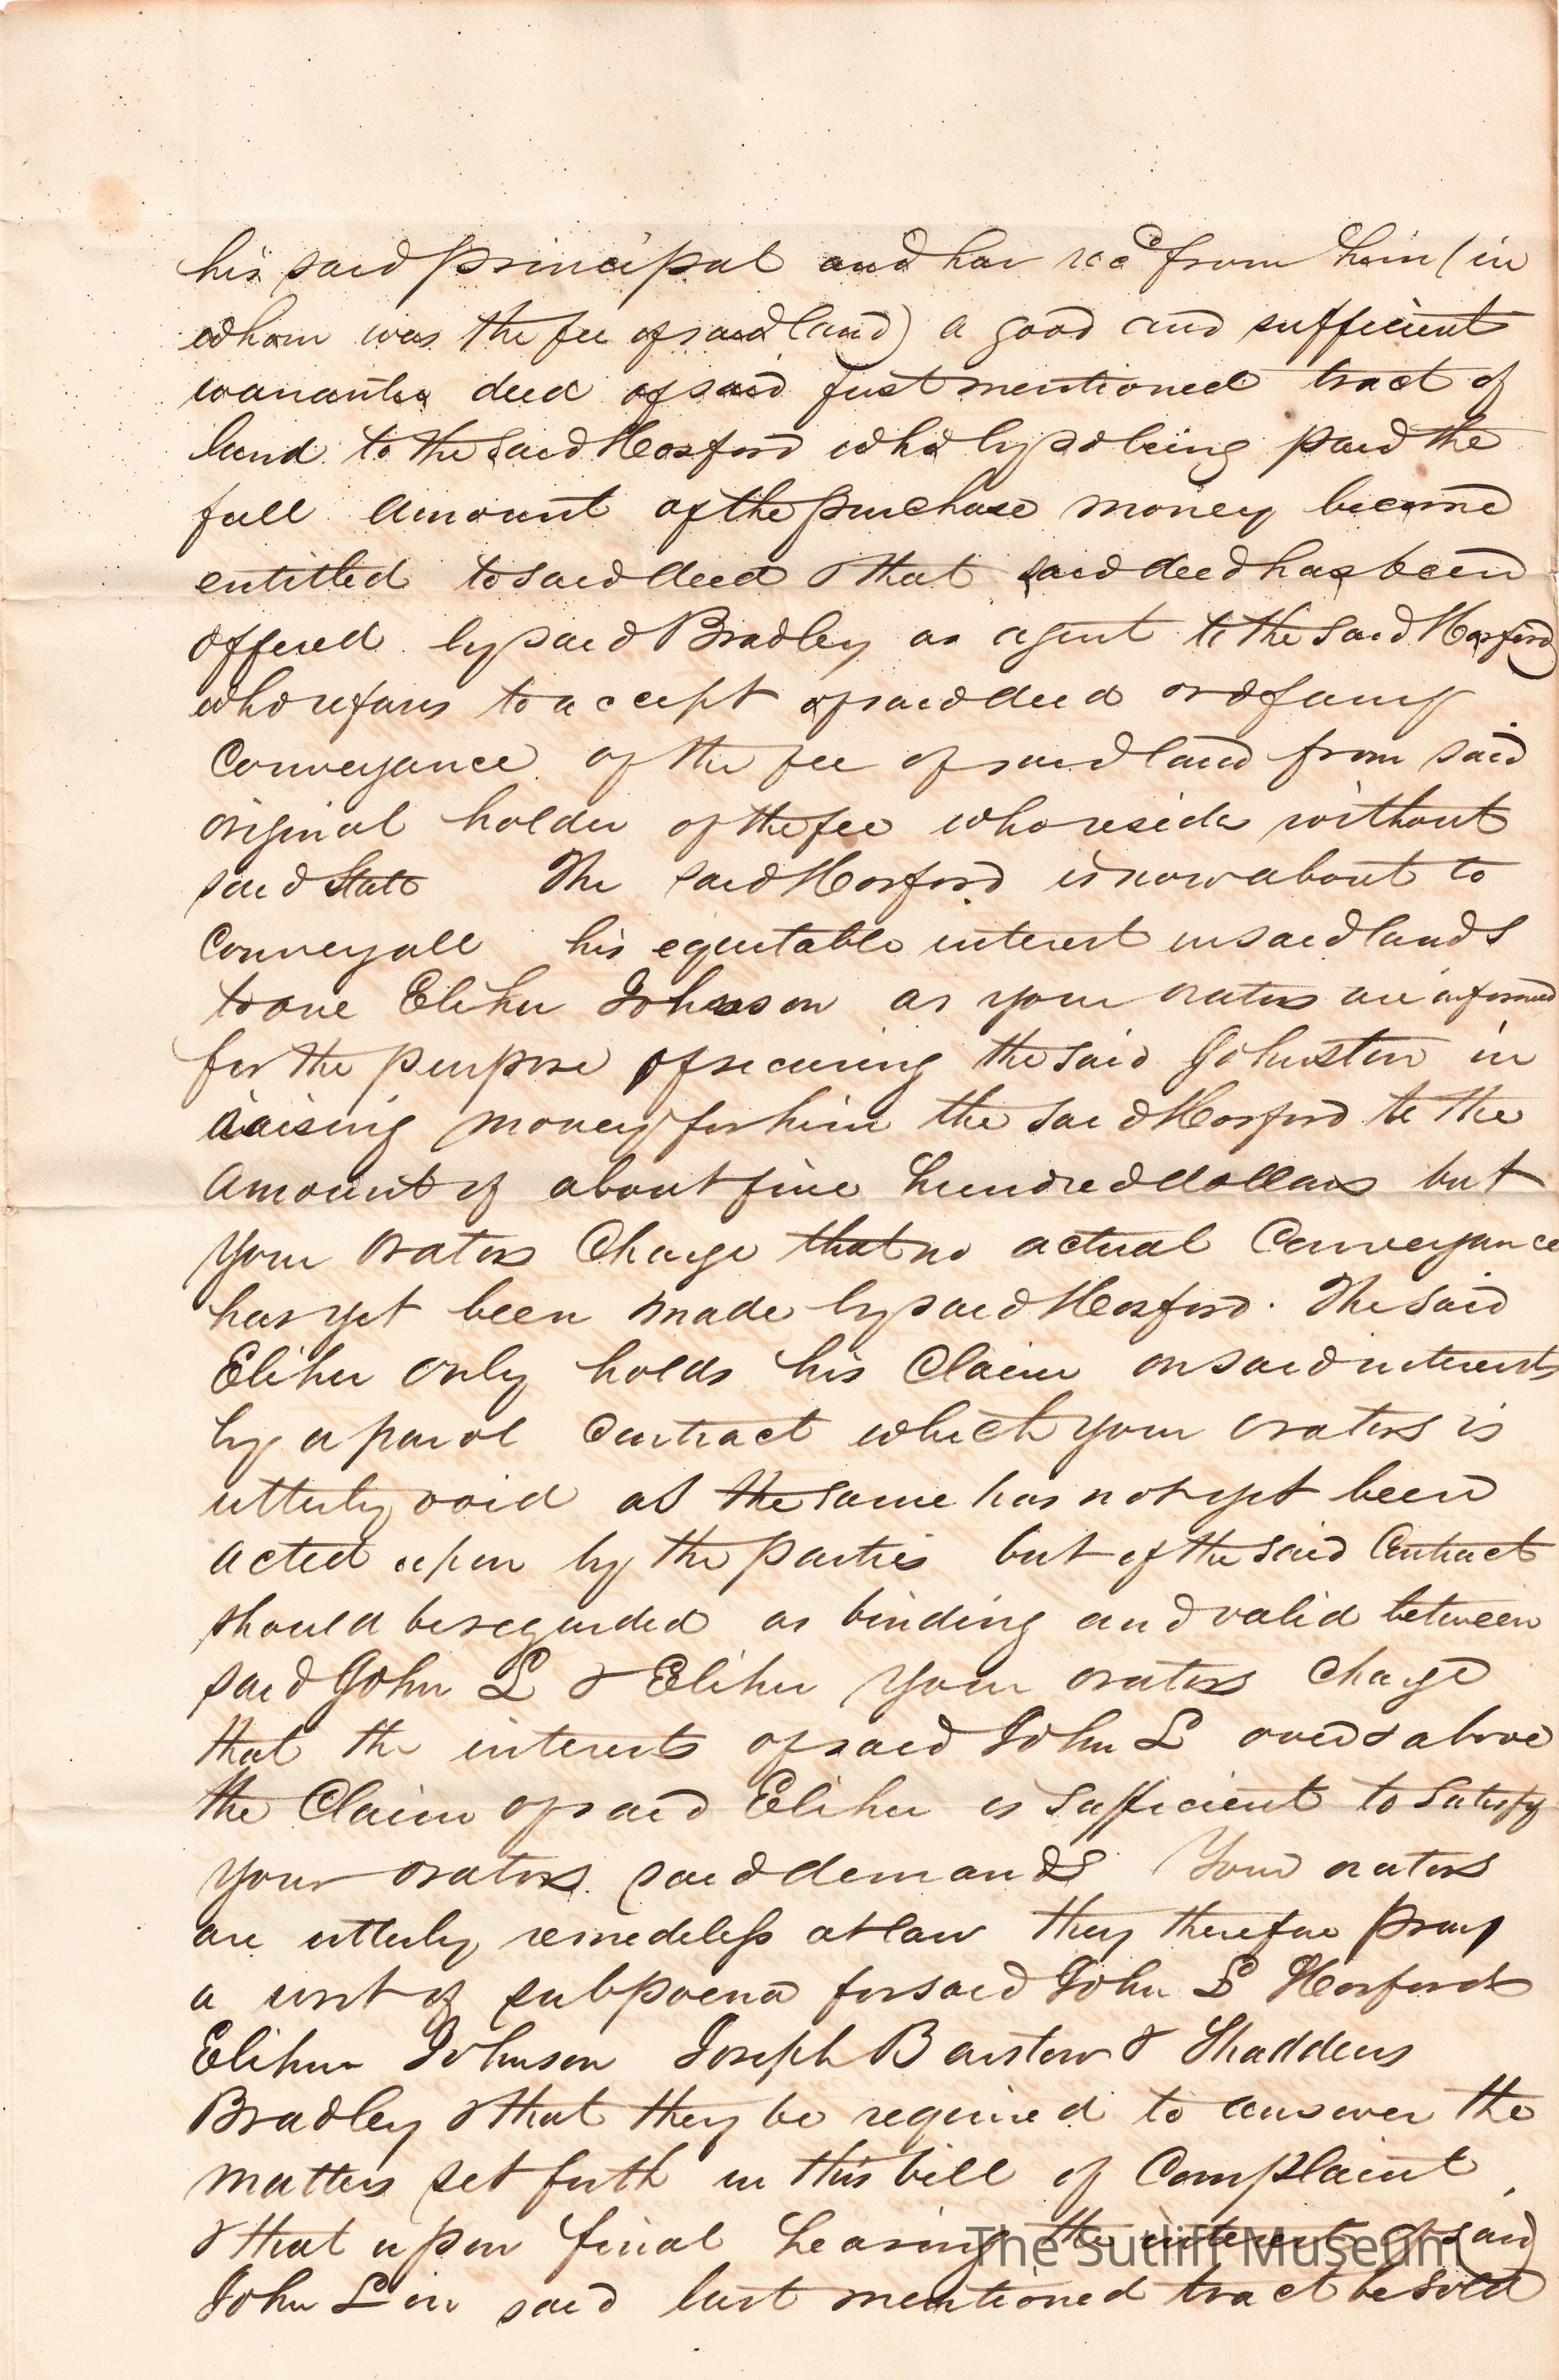 his said principal and has recd from him (in
whom was the fee of said land) a good and sufficient
warrantee deed of said first mentioned tract of
land to the said Hosford who by so being paid the
full amount of the purchase money become
entitled to said deed & that said deed has been
offered by said Bradley as agent to the said Hosford
who refuses to accept of said deed or of any
Conveyance of the fee of said land from said
original holder of the fee who reside without
said State The said Hosford is now about to
Convey all his equitable interest in said lands
to one Elihu Johnson as your orators are informed
for the purpose of securing the said Johnston in
raising money for him the said Hosford to the
amount of about five hundred dollars but
your orators Charge that no actual Conveyance
has yet been made by said Hosford. The said
Elihu only holds his Claim on said interests
by a parol Contract which your orators is
utterly void as the same has not yet been
acted upon by the parties but if the said Contract
should be regarded as binding and valid between
said John L & Elihu your orators Charge
that the interests of said John L over & above
the Claim of said Elihu is sufficient to satisfy
your orators said demands Your orators
are utterly remedeless at law they therefore pray
a writ of subpoena for said John L Hosford
Elihu Johnson Joseph Barstow & Thaddeus
Bradley & that they be required to answer the
matters set forth in this bill of Complaint,
& that upon final hearing the interest of said
John L in said last mentioned tract be sold
The Sutliff Museum